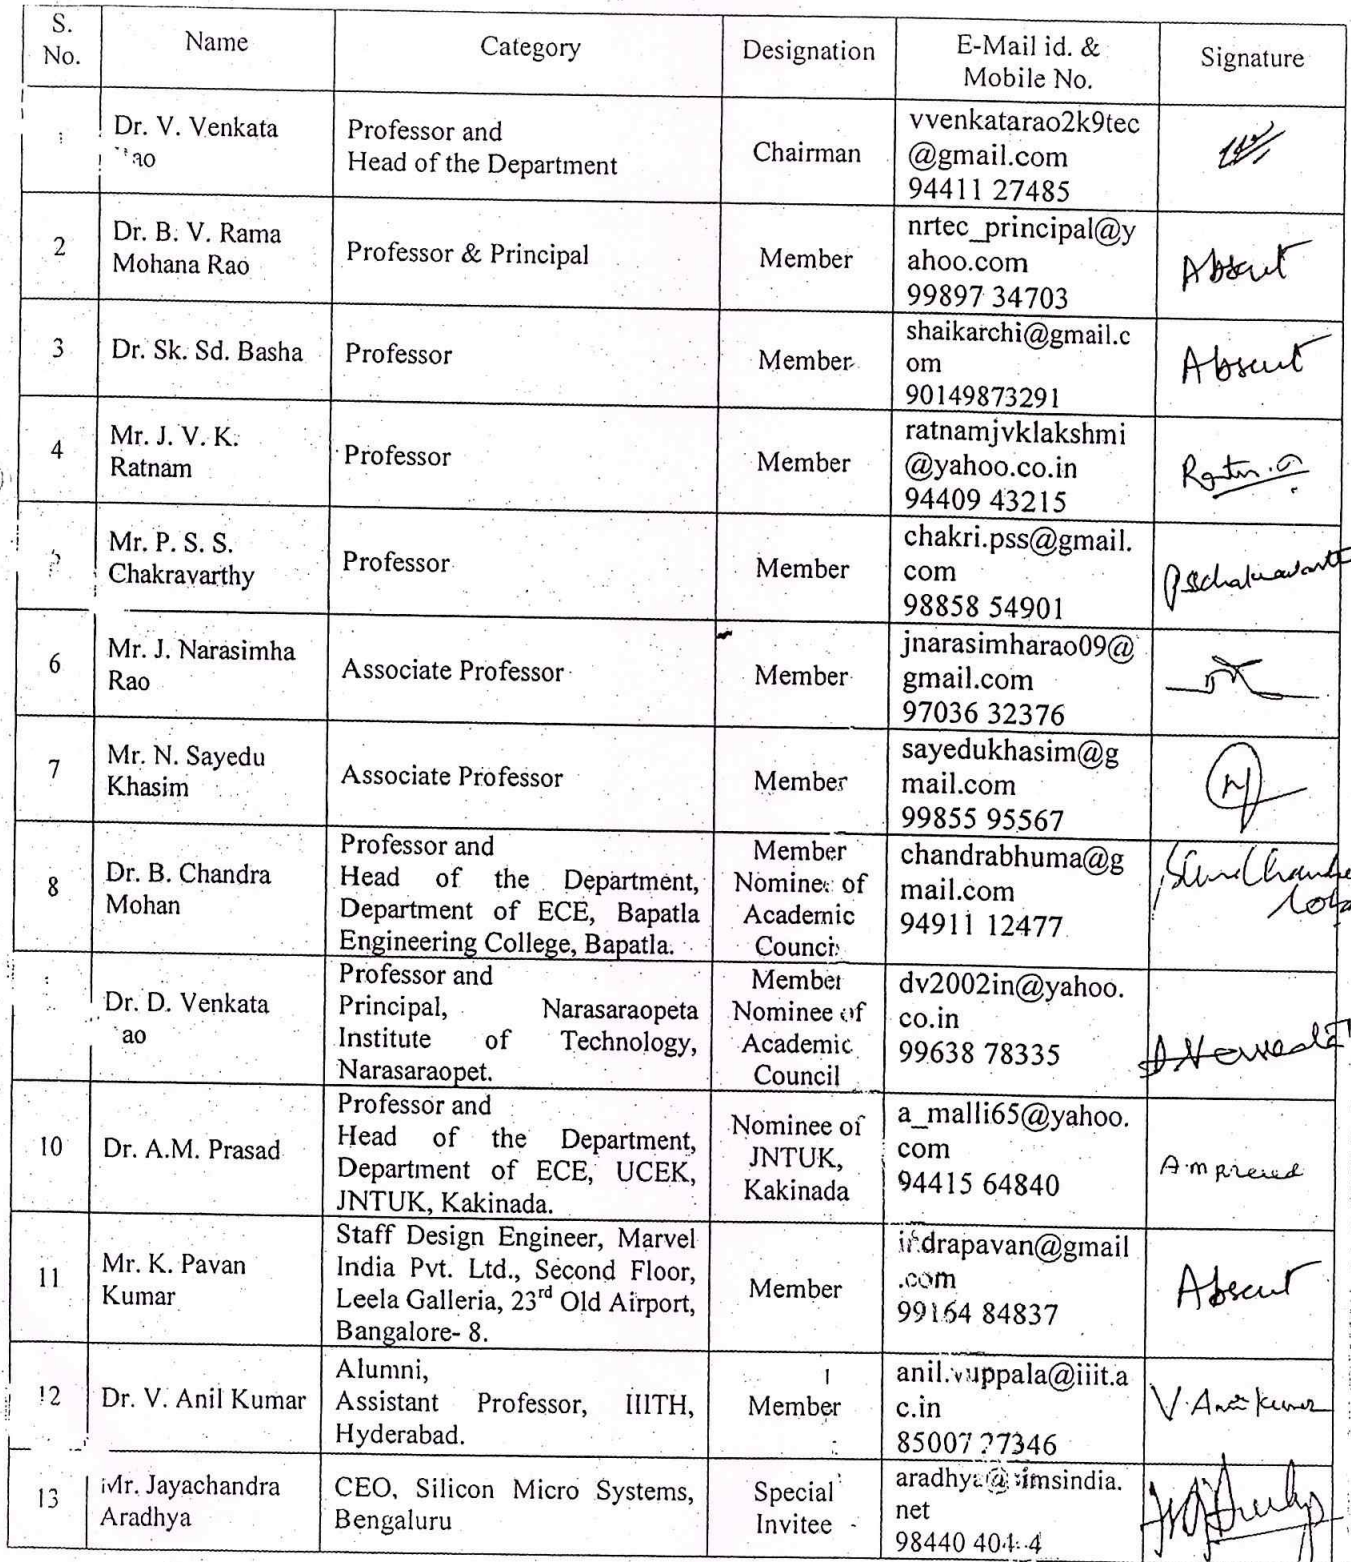 S. No.
Name
Category
Designation
E-Mail id. &
Mobile No.
Signature
Dr. V. Venkata
Professor and
Head of the Department
Chairman
vvenkatarao2k9tec
@gmail.com
94411 27485
2
Dr. B. V. Rama
Mohana Rao
Professor & Principal
Member
nrtec_principal@y
ahoo.com
99897 34703
Absent
3
Dr. Sk. Sd. Basha
Professor
Member
shaikarchi@gmail.c
om
90149873291
Absent
4
Mr. J. V. K.
Ratnam
Professor
Member
ratnamjvklakshmi
@yahoo.co.in
94409 43215
Mr. P. S. S.
Chakravarthy
Professor
Member
chakri.pss@gmail.
com
98858 54901
6
Mr. J. Narasimha
Rao
Associate Professor
Member
jnarasimharao09@
gmail.com
97036 32376
7
Mr. N. Sayedu
Khasim
Associate Professor
Member
sayedukhasim@g
mail.com
99855 95567
8
Dr. B. Chandra
Mohan
Professor and
Head of the Department,
Department of ECE, Bapatla
Engineering College, Bapatla.
Member
Nominee of
Academic
Council
chandrabhuma@g
mail.com
94911 12477
Dr. D. Venkata
Professor and
Principal, Narasaraopeta
Institute of Technology,
Narasaraopet.
Member
Nominee of
Academic
Council
dv2002in@yahoo.
co.in
99638 78335
10
Dr. A.M. Prasad
Professor and
Head of the Department,
Department of ECE, UCEK,
JNTUK, Kakinada.
Nominee of
JNTUK,
Kakinada
a_malli65@yahoo.
com
94415 64840
11
Mr. K. Pavan
Kumar
Staff Design Engineer, Marvel
India Pvt. Ltd., Second Floor,
Leela Galleria, 23rd Old Airport,
Bangalore- 8.
Member
.com
99164 84837
Absent
12
Dr. V. Anil Kumar
Alumni,
Assistant Professor, IIITH,
Hyderabad.
Member
anil.vuppala@iiit.a
c.in
V. Anil Kumar
13
Mr. Jayachandra
Aradhya
CEO, Silicon Micro Systems,
Bengaluru
Special
Invitee
net
98440